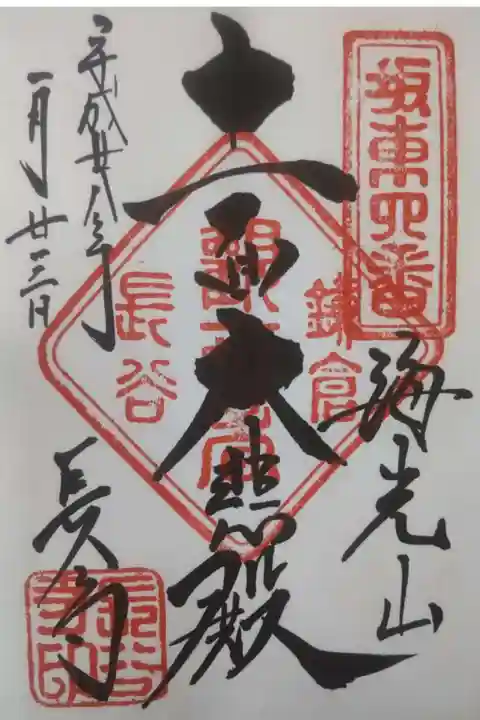 坂東四番
海光山
鎌倉
十一面大悲殿
長谷
平成廿八年
一月廿三日
長谷寺
長谷寺印